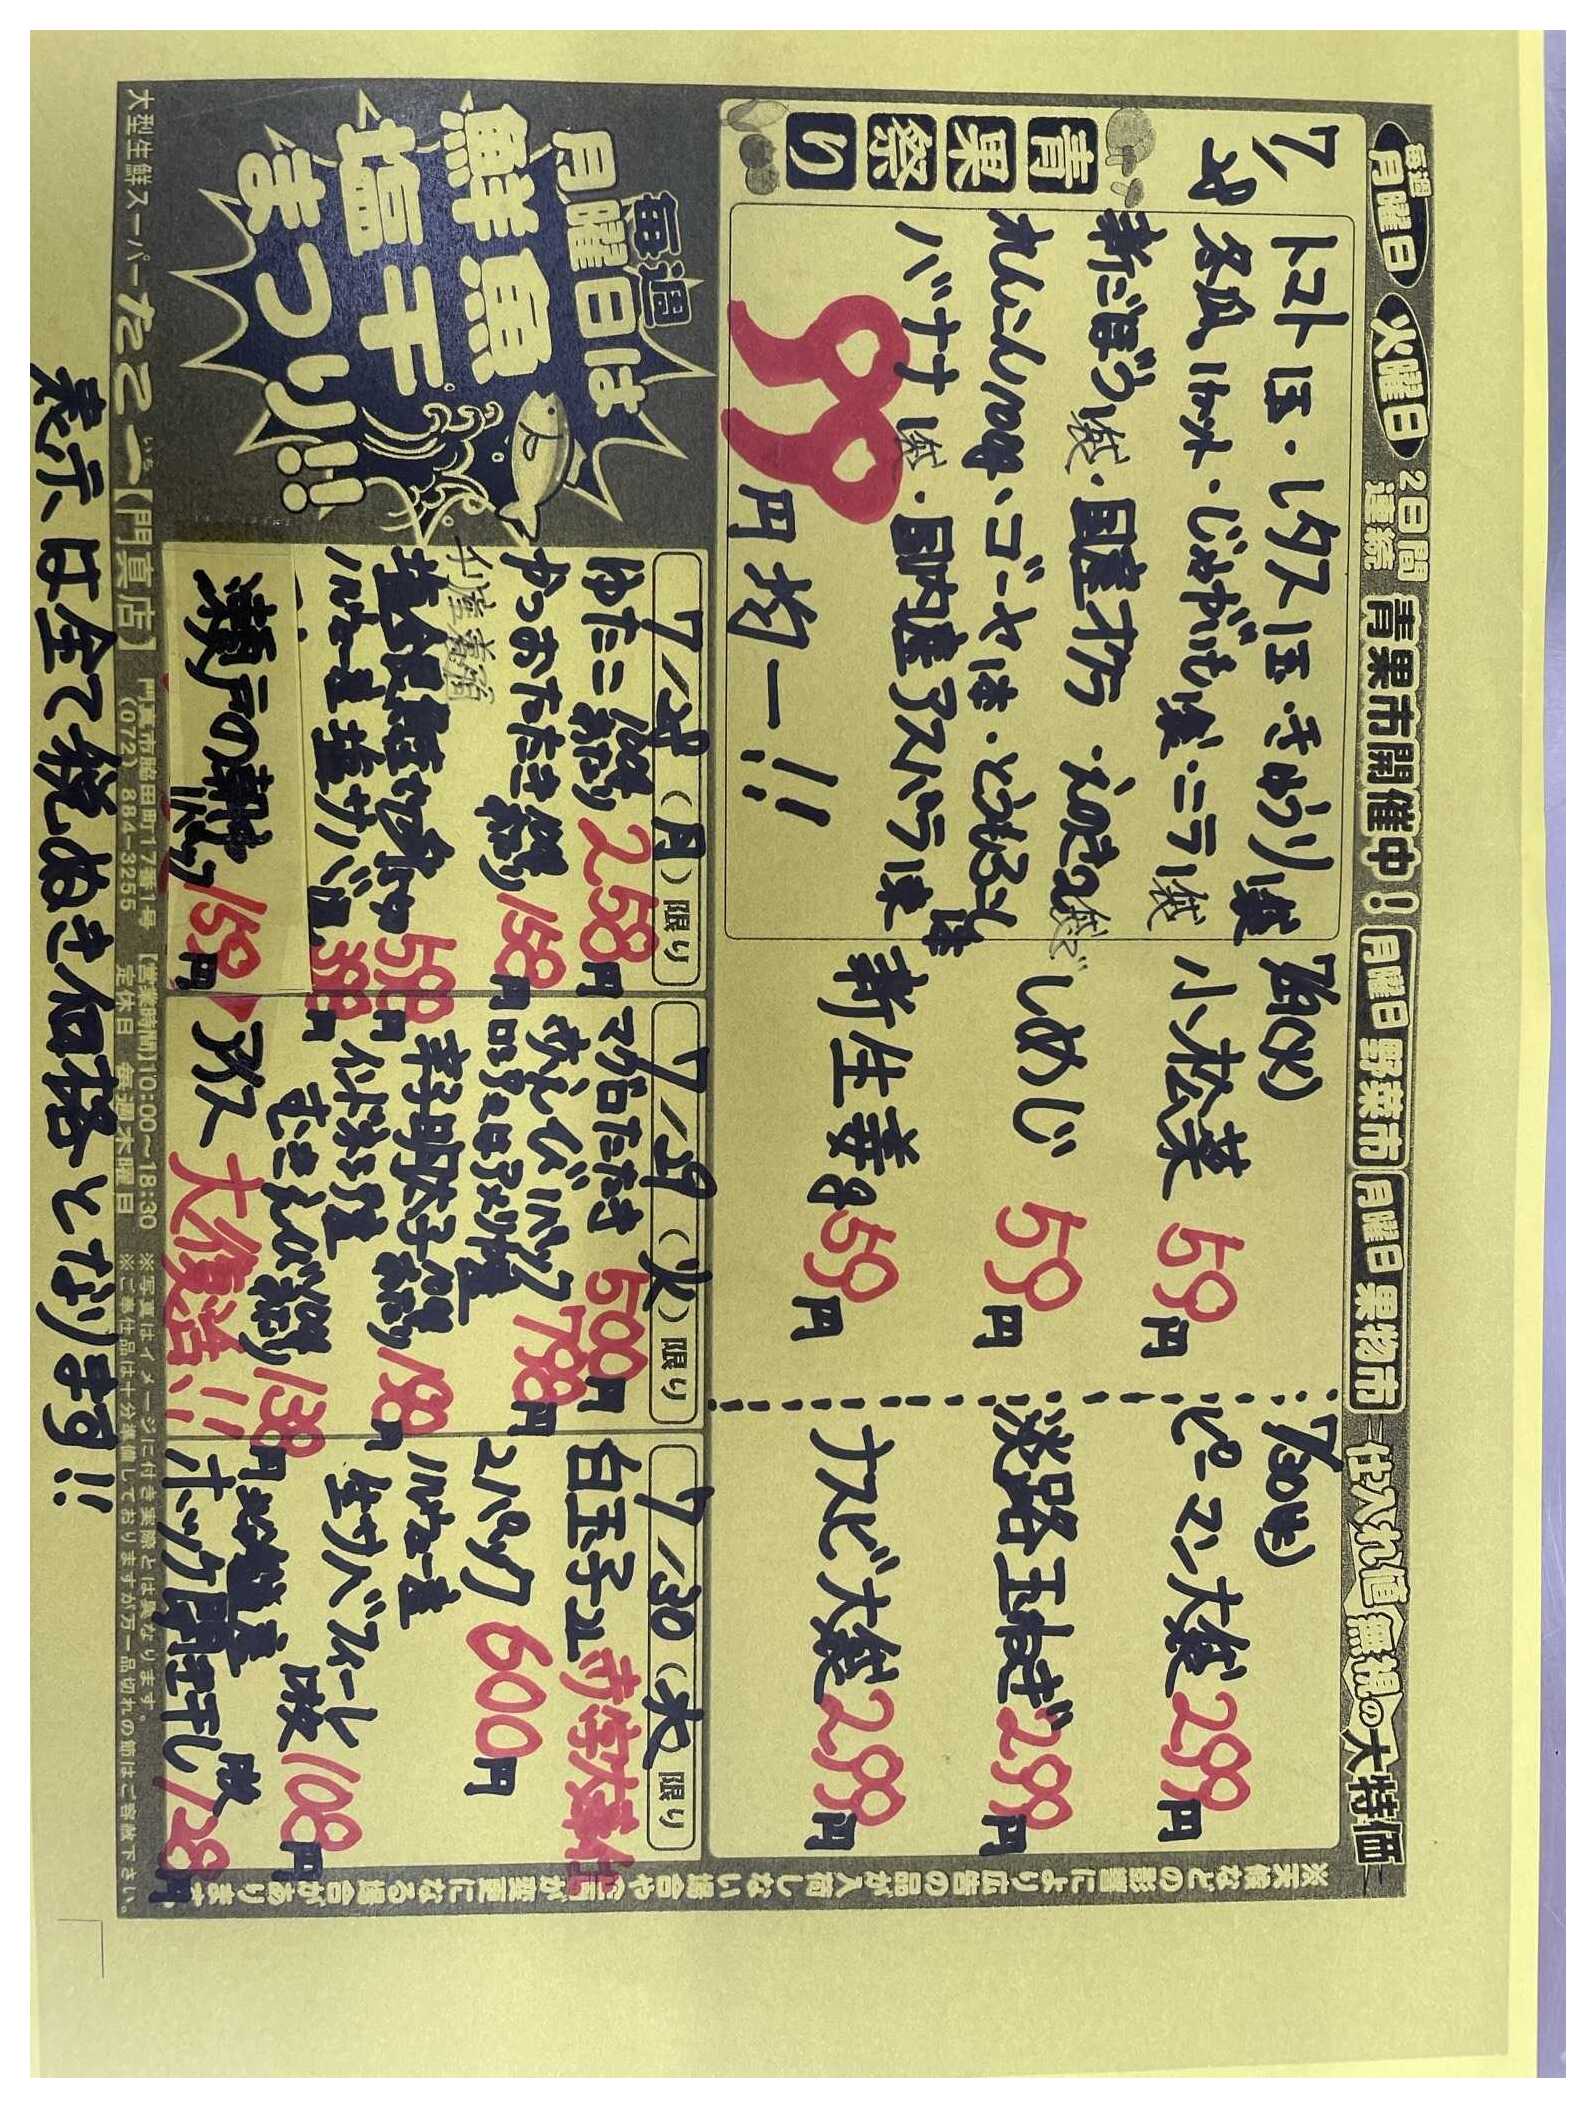 毎週 月曜日 火曜日 2日間連続 青果市開催中! 月曜日 野菜市 月曜日 果物市 仕入れ値無視の大特価
7/28
青果祭り
トマト1玉・レタス1玉・きゅうり1袋
冬瓜1カット・じゃがいも1袋・ニラ1袋
新ごぼう1袋・国産オクラ・えのき2袋で
れんこん100g・ゴーヤ1本・とうもろこし1本
バナナ1袋・国内産アスパラ1束
99円均一!!
7/29(火)
小松菜 59円
しめじ 59円
新生姜 59円
7/30(水)
ピーマン大袋 299円
淡路玉ねぎ 299円
ナスビ大袋 299円
※天候などの影響により広告の品が入荷しない場合や金額が変更になる場合があります
毎週
月曜日は
鮮魚
塩干
まつり!!
7/28(月)限り
ゆたこ 100g当り 258円
かつおたたき 100g当り 158円
千塩養殖
塩銀鮭
ノルウェー産塩サバ 398円
瀬戸の新 1パック 159円
7/29(火)限り
マグロたたき 500円
赤えび 1パック 798円
辛子明太子 100g当り 198円
インドネシア産
むきえび 100g当り 138円
アイス 大復活!!
7/30(水)限り
白玉子2L
2パック 600円
ノルウェー産
生サバフィーレ 1枚 108円
ホッケ開き干し 1枚 128円
大型生鮮スーパー たこ一【門真店】 門真市脇田町17番1号 (072)884-3255 【営業時間】10:00~18:30 定休日 毎週木曜日
※写真はイメージに付き実際とは異なります。
※ご奉仕品は十分準備しておりますが万一品切れの節はご容赦下さい。
表示は全て税ぬき価格となります!!